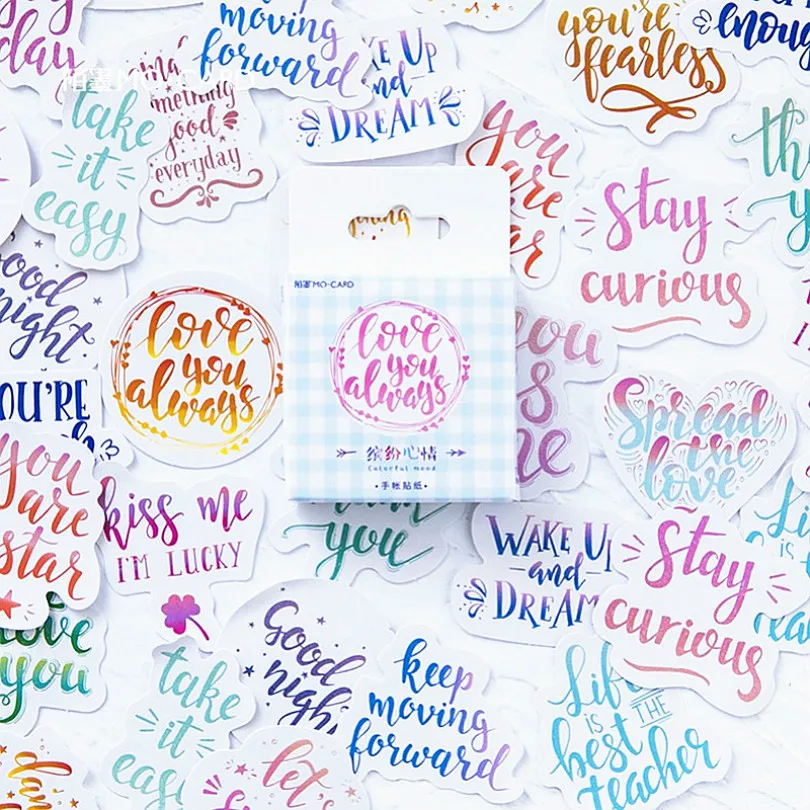 day
moving
forward
WAKE UP
and
DREAM
you're
fearless
enough
陌墨 MO·CARD
take
it
easy
something
good
everyday
you
are
star
Stay
curious
good
night
love
you
always
陌墨 MO·CARD
love
you
always
缤纷心情
Colorful mood
·手帐贴纸·
you
me
Spread
the
love
YOU'RE
you
are
star
kiss me
I'M LUCKY
you
WAKE UP
and
DREAM
Stay
curious
love
you
take
it
easy
Good
night
keep
moving
forward
Life
IS THE
best
teacher
let's